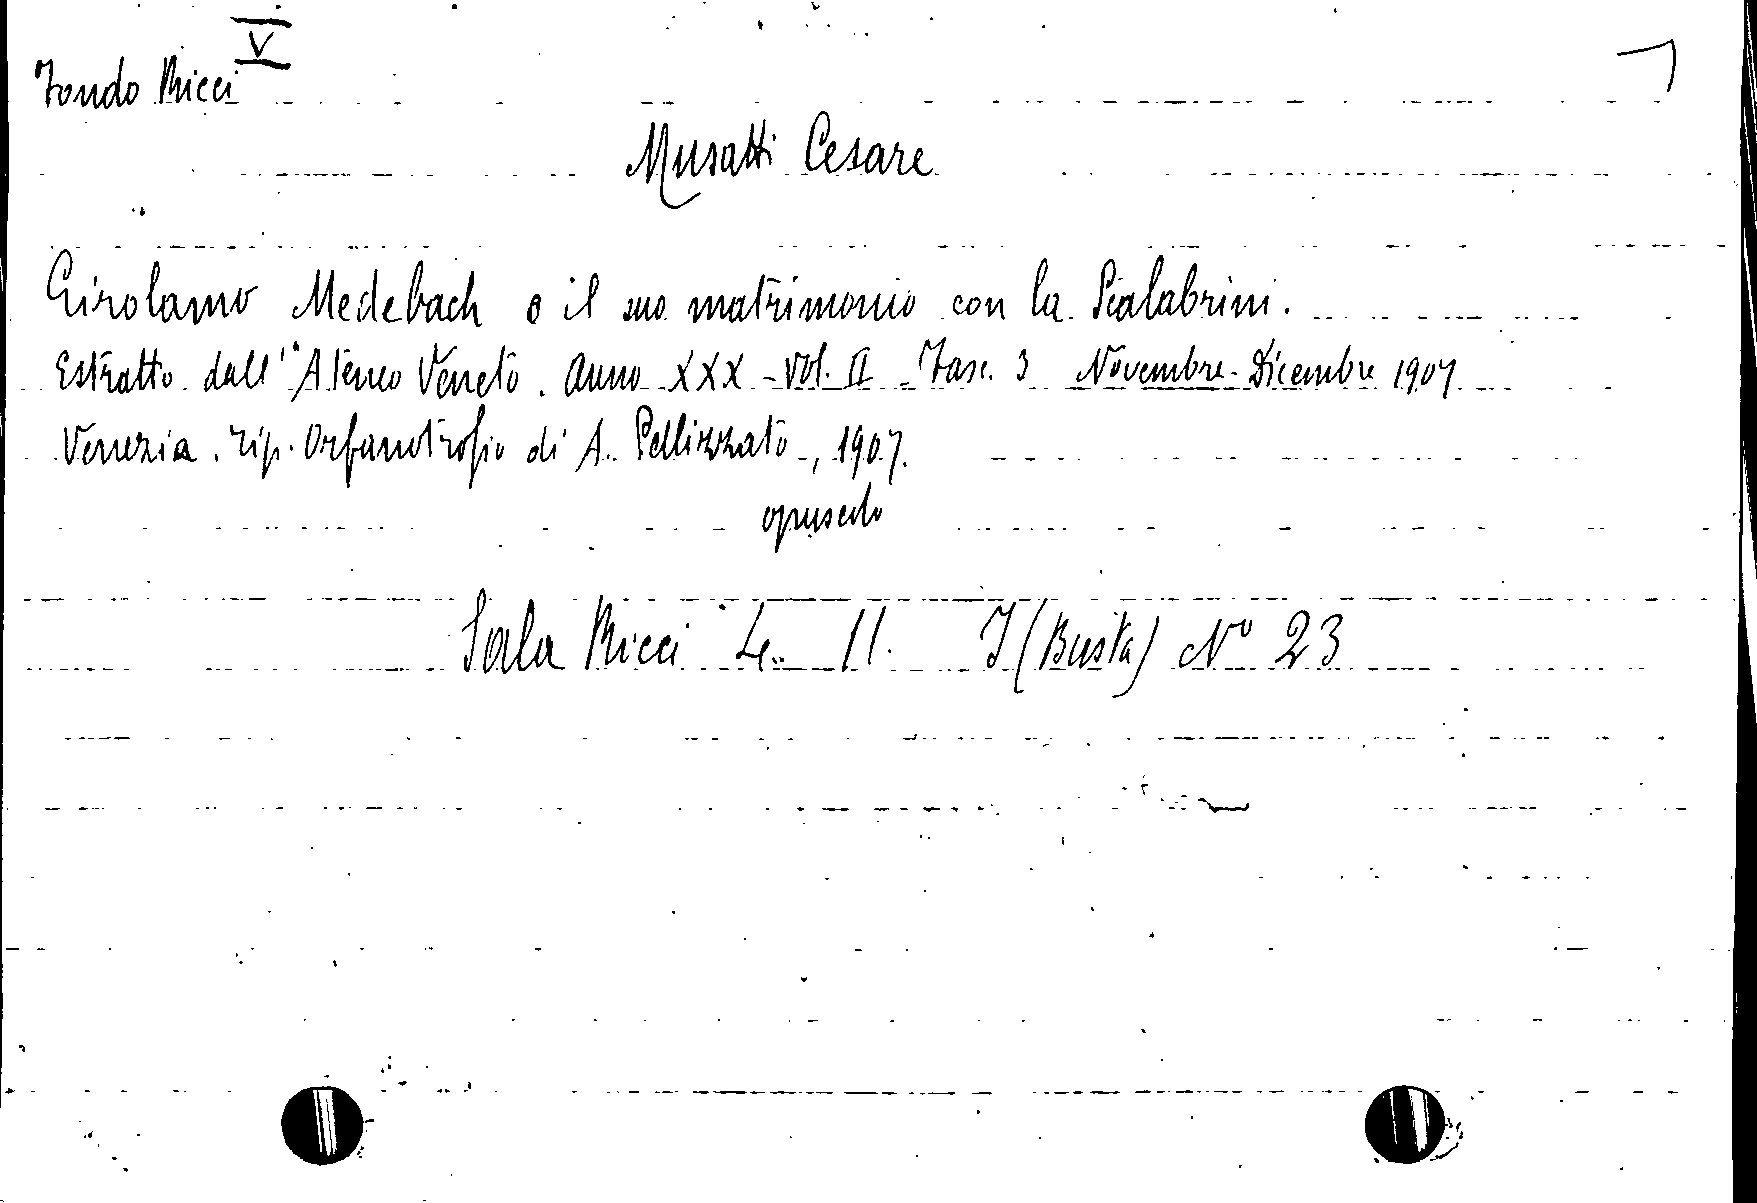 V
Fondo Ricci
Musatti Cesare
Girolamo Medebach e il suo matrimonio con la Scalabrini.
Estratto dall' "Ateneo Veneto. Anno XXX - Vol. II Fasc. 3 Novembre-Dicembre 1907
Venezia. Tip. Orfanotrofio di A. Pellizzato, 1907.
opuscolo
Sala Ricci Le. 11. I (Busta) Nº 23